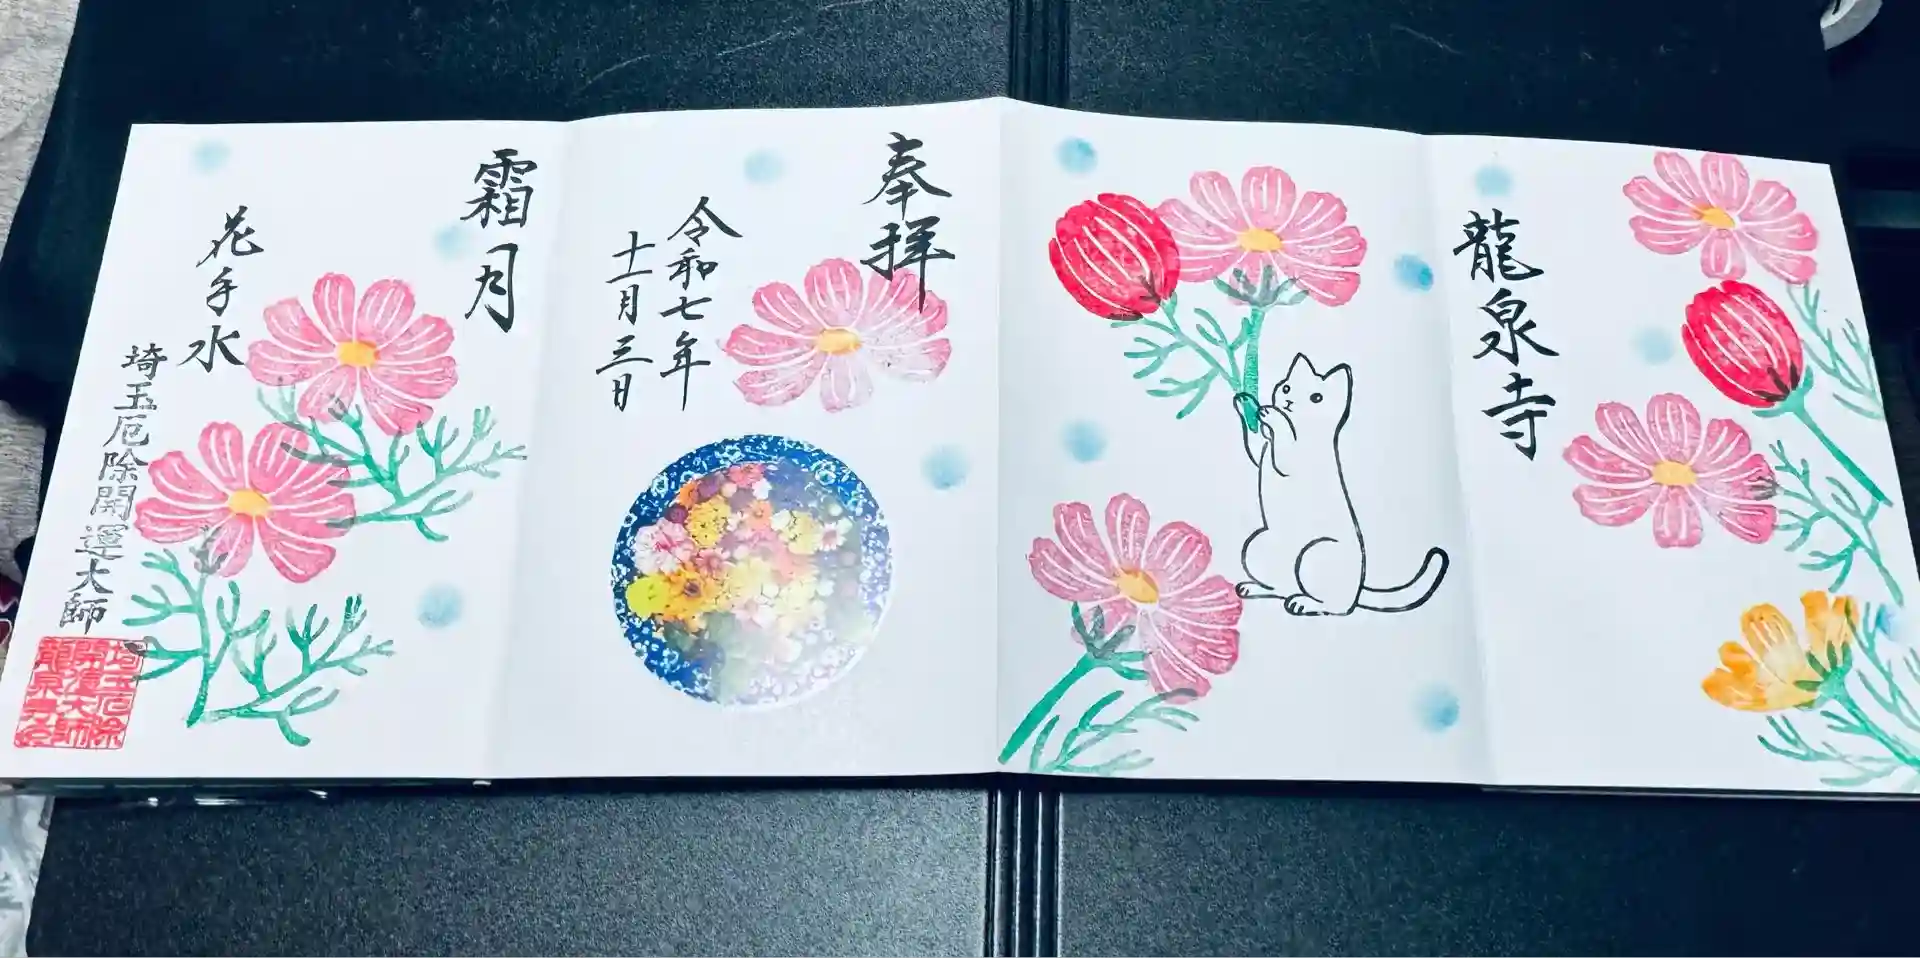 龍泉寺
奉拝
令和七年
十一月三日
霜月
花手水
埼玉厄除開運大師
埼玉厄除
開運大師
龍泉寺